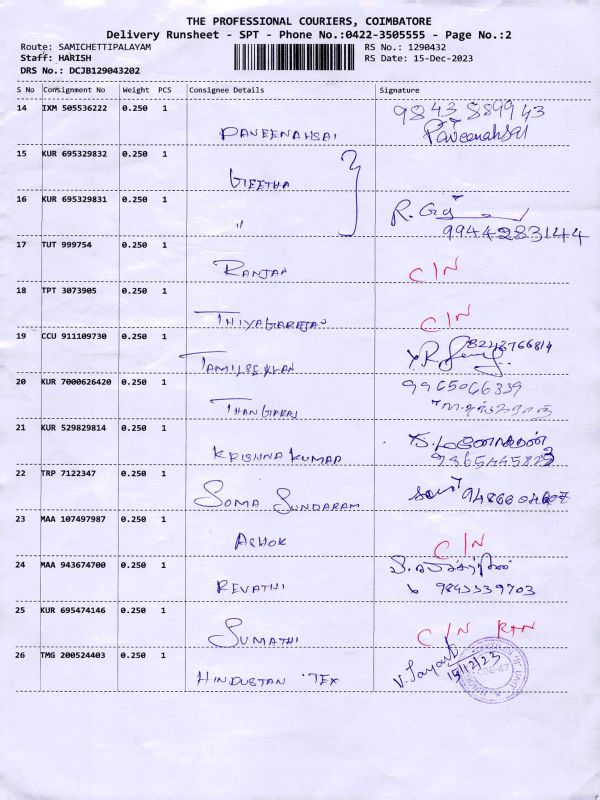 THE PROFESSIONAL COURIERS, COIMBATORE
Delivery Runsheet - SPT - Phone No.:0422-3505555 - Page No.:2
Route: SAMICHETTIPALAYAM RS No.: 1290432
Staff: HARISH RS Date: 15-Dec-2023
DRS No.: DCJB129043202
S No Consignment No Weight PCS Consignee Details Signature
14 IXM 505536222 0.250 1 9843889943
PAVEENAHSAI Paveenahsai
15 KUR 695329832 0.250 1
GEETHA
16 KUR 695329831 0.250 1 R.
" 9944283144
17 TUT 999754 0.250 1
RANJAN C/N
18 TPT 3073905 0.250 1
THIYAGARAJAN C/N
19 CCU 911109730 0.250 1
TAMILSELVAN
20 KUR 7000626420 0.250 1 9965066339
THANGARAJ
21 KUR 529829814 0.250 1
KRISHNA KUMAR
22 TRP 7122347 0.250 1
SOMA SUNDARAM
23 MAA 107497987 0.250 1
ASHOK C/N
24 MAA 943674700 0.250 1
REVATHI
25 KUR 695474146 0.250 1
SUMATHI C/N RTN
26 TMG 200524403 0.250 1
HINDUSTAN TEX 15/12/23